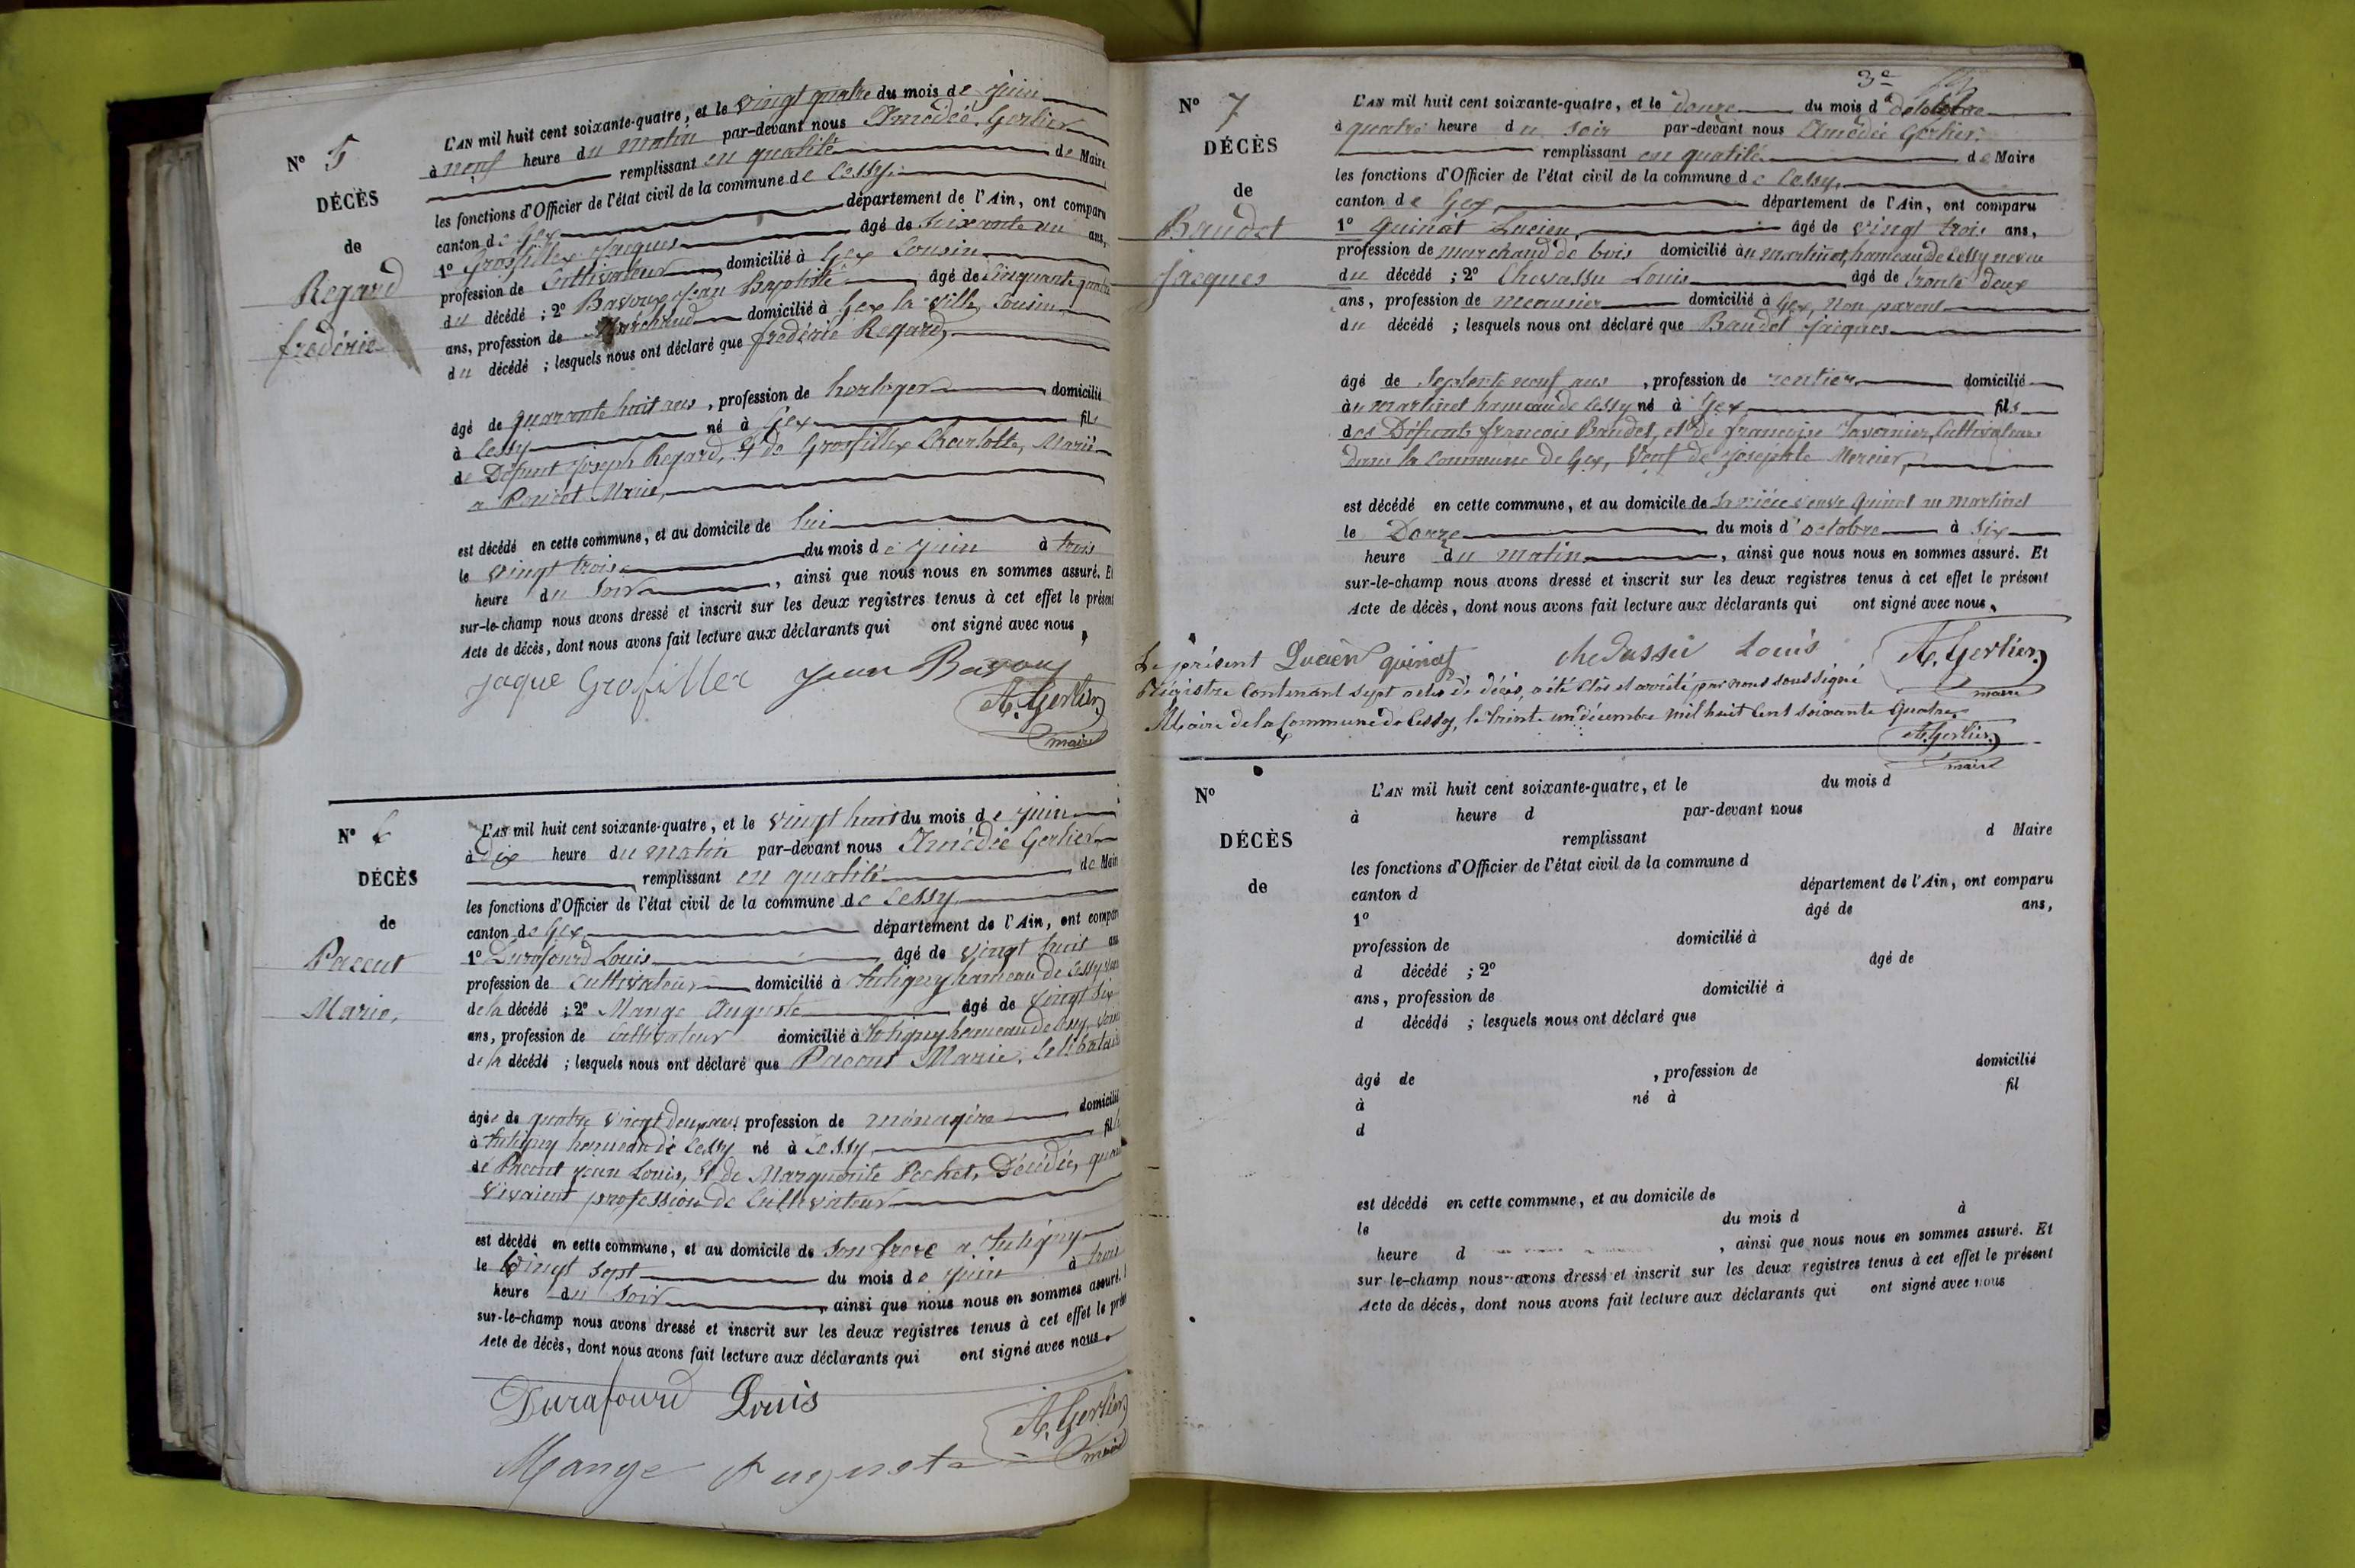 N° 5
DÉCÈS
de
Regard
frédéric
L'AN mil huit cent soixante-quatre, et le vingt quatre du mois de juin
à neuf heure du matin par-devant nous Amédée Gerlier
remplissant en qualité de Maire
les fonctions d'Officier de l'état civil de la commune de Cessy,
canton de Gex département de l'Ain, ont comparu
1° Grosfillex Jacques âgé de soixante un ans,
profession de Cultivateur domicilié à Gex Cousin
du décédé ; 2° Bavoux Jean Baptiste âgé de Cinquante quatre
ans, profession de Marchand domicilié à Gex la ville, Cousin
du décédé ; lesquels nous ont déclaré que frédéric Regard,
âgé de quarante huit ans, profession de horloger domicilié
à Cessy né à Gex fils
de Défunt Joseph Regard, & de Grosfillex Charlotte, Marié
a Marie,
est décédé en cette commune, et au domicile de lui
le vingt trois du mois de juin à trois
heure du soir, ainsi que nous nous en sommes assuré. Et
sur-le-champ nous avons dressé et inscrit sur les deux registres tenus à cet effet le présent
Acte de décès, dont nous avons fait lecture aux déclarants qui ont signé avec nous,
jaque Grosfillex Jean Bavoux
A. Gerlier
maire
N° 6
DÉCÈS
de
Pacout
Marie,
L'AN mil huit cent soixante-quatre, et le vingt huit du mois de juin
à dix heure du matin par-devant nous Amédée Gerlier
remplissant en qualité de Maire
les fonctions d'Officier de l'état civil de la commune de Cessy
canton de Gex, département de l'Ain, ont comparu
1° Durafourd Louis âgé de vingt huit ans
profession de Cultivateur domicilié à Tutigny hameau de Cessy
de la décédé ; 2° Mange Auguste âgé de vingt six
ans, profession de Cultivateur domicilié à Tutigny hameau de Cessy
de la décédé ; lesquels nous ont déclaré que Pacout Marie, Célibataire
âgée de quatre vingt deux ans profession de ménagère domicilié
à Tutigny hameau de Cessy né à Cessy fille
de Pacout Jean Louis, & de Marguerite Pochet, Décédés, quand
vivaient profession de Cultivateur
est décédé en cette commune, et au domicile de son frere a Tutigny
le Vingt sept du mois de juin à trois
heure du soir, ainsi que nous nous en sommes assuré.
sur-le-champ nous avons dressé et inscrit sur les deux registres tenus à cet effet le présent
Acte de décès, dont nous avons fait lecture aux déclarants qui ont signé avec nous.
Durafourd Louis
A. Gerlier
maire
Mange Auguste
3e
N° 7
DÉCÈS
de
Baudet
Jacques
L'AN mil huit cent soixante-quatre, et le douze du mois d'octobre
à quatre heure du soir par-devant nous Amédée Gerlier
remplissant en qualité de Maire
les fonctions d'Officier de l'état civil de la commune de Cessy,
canton de Gex, département de l'Ain, ont comparu
1° Quinat Lucien, âgé de vingt trois ans,
profession de marchand de bois domicilié au martinet, hameau de Cessy neveu
du décédé ; 2° Chevassu Louis âgé de trente deux
ans, profession de meunier domicilié à Gex, non parent
du décédé ; lesquels nous ont déclaré que Baudet Jacques
âgé de Septente neuf ans, profession de rentier domicilié
à au martinet hameau de Cessy né à Gex fils
des Défunts francois Baudet, et de francoise Tavernier, Cultivateurs
dans la Commune de Gex, Veuf de Josephte Mercier,
est décédé en cette commune, et au domicile de sa nièce veuve Quinat au martinet
le Douze du mois d'octobre à six
heure du matin, ainsi que nous nous en sommes assuré. Et
sur-le-champ nous avons dressé et inscrit sur les deux registres tenus à cet effet le présent
Acte de décès, dont nous avons fait lecture aux déclarants qui ont signé avec nous,
Lucien quinat chevassu Louis A. Gerlier
maire
Le présent
Régistre Contenant sept actes de décès, a été Clos et arrêté par nous soussigné
Maire de la Commune de Cessy, le trente un décembre mil huit Cent soixante Quatre
A. Gerlier
maire
N°
DÉCÈS
de
L'AN mil huit cent soixante-quatre, et le du mois d
à heure d par-devant nous
remplissant d Maire
les fonctions d'Officier de l'état civil de la commune d
canton d département de l'Ain, ont comparu
1° âgé de ans,
profession de domicilié à
d décédé ; 2° âgé de
ans, profession de domicilié à
d décédé ; lesquels nous ont déclaré que
âgé de , profession de domicilié
à né à fil
d
est décédé en cette commune, et au domicile de
le du mois d à
heure d , ainsi que nous nous en sommes assuré. Et
sur le-champ nous avons dressé et inscrit sur les deux registres tenus à cet effet le présent
Acte de décès, dont nous avons fait lecture aux déclarants qui ont signé avec nous